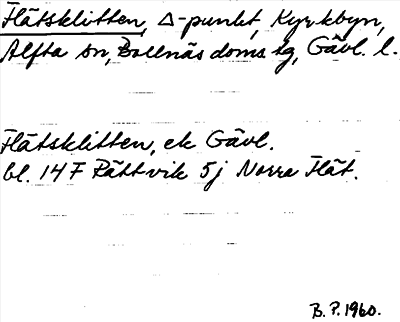 Flätsklitten, Δ-punkt, Kyrkbyn,
Alfta sn, Bollnäs doms tg, Gävl. l.
Flätsklitten, ek Gävl.
bl. 14 F Rättvik 5j Norra Flät.
B. P. 1960.